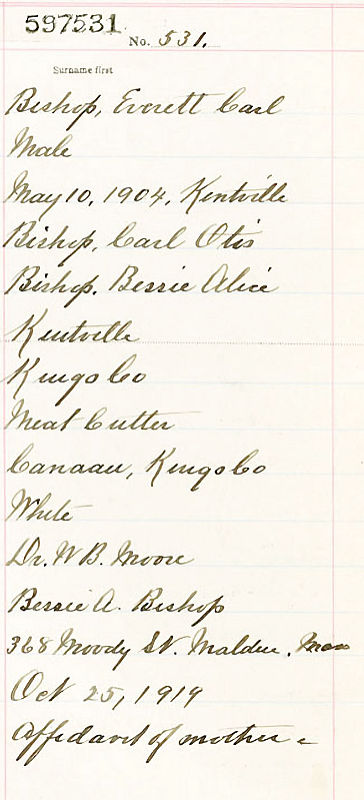 597531
No. 531.
Surname first
Bishop, Everett Carl
Male
May 10, 1904, Kentville
Bishop, Carl Otis
Bishop, Bessie Alice
Kentville
Kings Co
Meat Cutter
Canaan, Kings Co
White
Dr. W B. Moore
Bessie A. Bishop
368 Moody St. Malden, Mass
Oct 25, 1919
Affidavit of mother